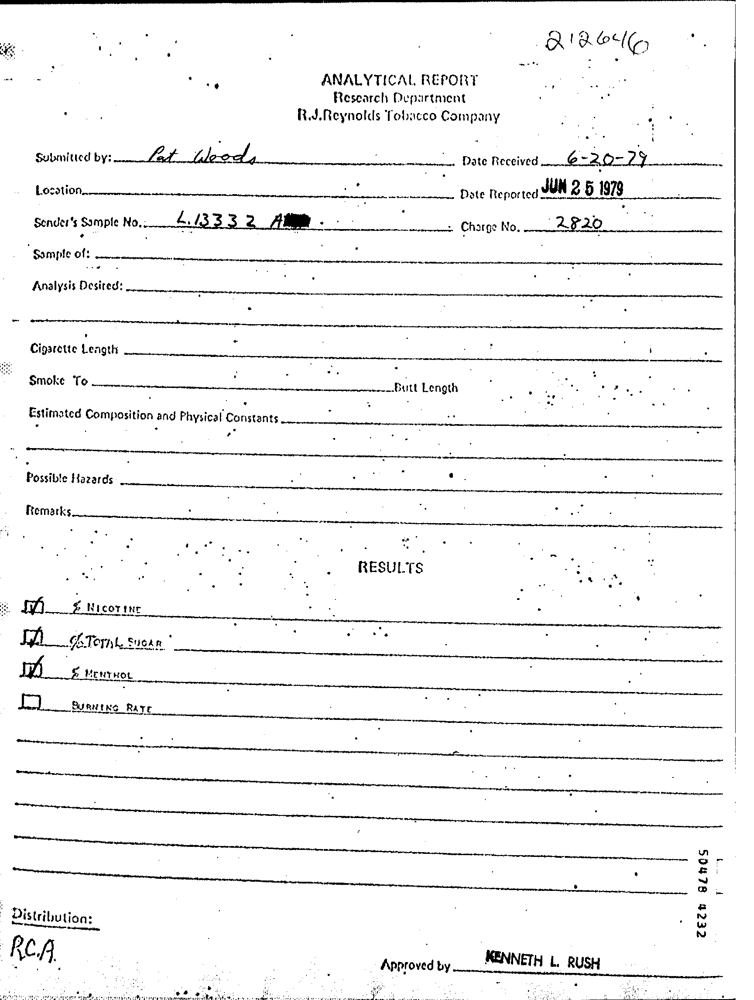 212646
ANALYTICAL REPORT
Research Department
R.J.Reynolds Tobacco Company
Submitted by: Pat Woods Date Received 6-20-79
Location Date Reported JUN 25 1979
Sender's Sample No. L.13332 A Charge No. 2820
Sample of:
Analysis Desired:
Cigarette Length
Smoke To Butt Length
Estimated Composition and Physical Constants
Possible Hazards
Remarks
RESULTS
% NICOTINE
% TOTAL SUGAR
% MENTHOL
BURNING RATE
50478 4232
Distribution:
R.C.A.
Approved by KENNETH L. RUSH